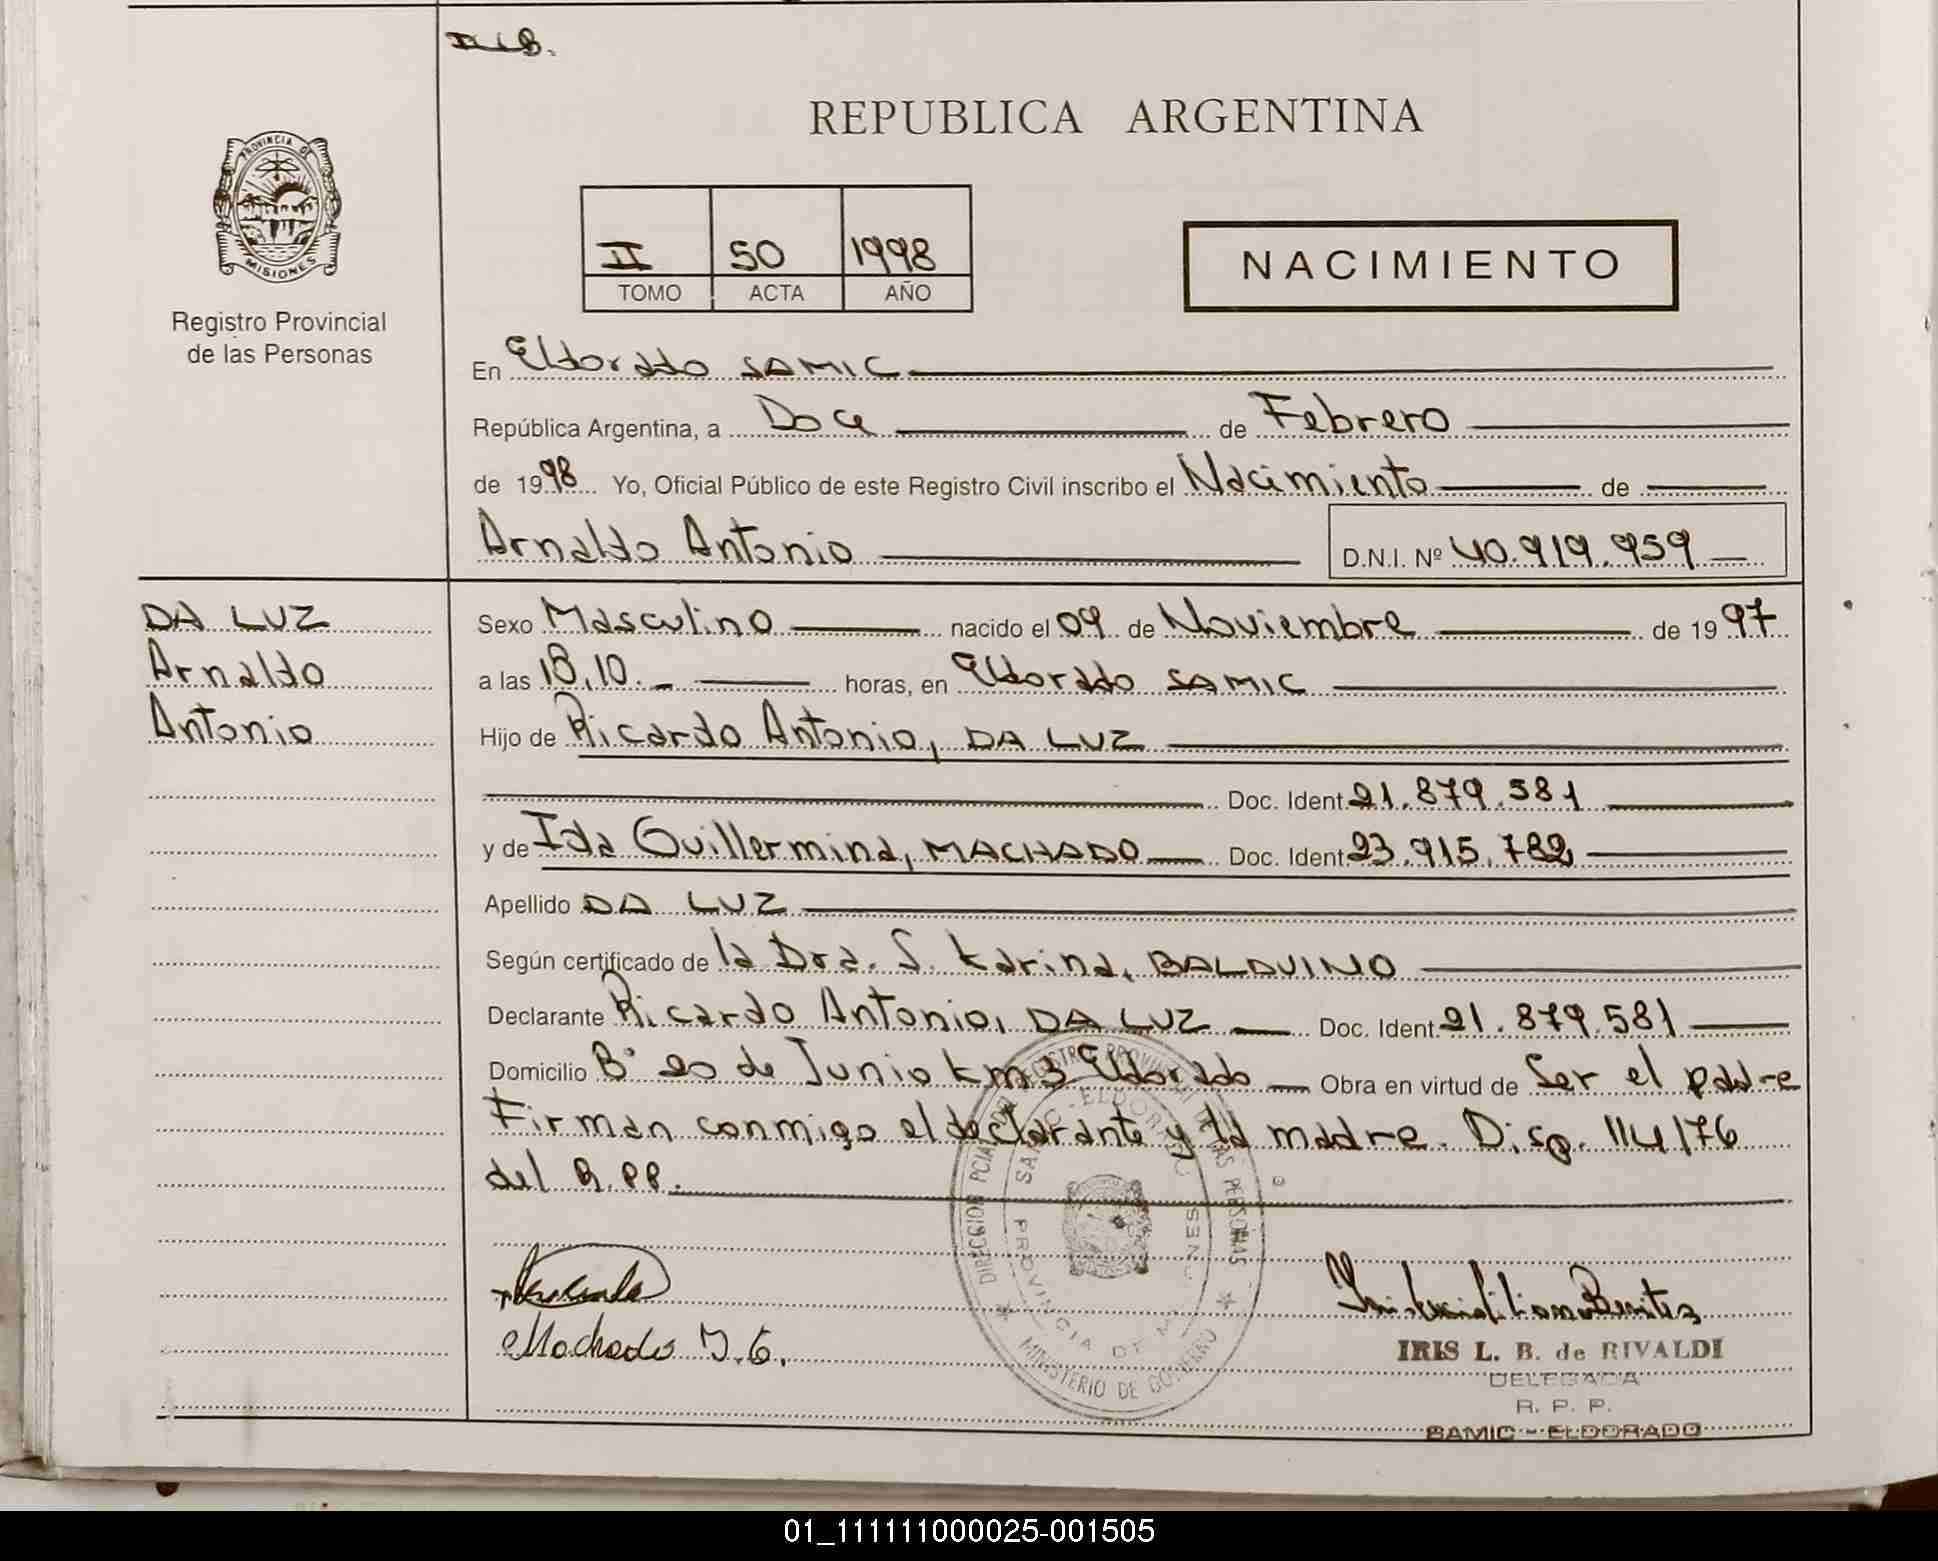 REPUBLICA ARGENTINA
PROVINCIA DE
MISIONES
Registro Provincial
de las Personas
II 50 1998
TOMO ACTA AÑO
NACIMIENTO
En Eldorado SAMIC
República Argentina, a Doce de Febrero
de 1998 Yo, Oficial Público de este Registro Civil inscribo el Nacimiento de
Arnaldo Antonio D.N.I. Nº 40.919.959
DA LUZ
Arnaldo
Antonio
Sexo Masculino nacido el 09 de Noviembre de 1997
a las 18,10. horas, en Eldorado SAMIC
Hijo de Ricardo Antonio, DA LUZ
Doc. Ident. 21.879.581
y de Ida Guillermina, MACHADO Doc. Ident. 23.915.782
Apellido DA LUZ
Según certificado de la Dra. S. Karina, BALDUINO
Declarante Ricardo Antonio, DA LUZ Doc. Ident. 21.879.581
Domicilio Bº 20 de Junio km 3 Eldorado Obra en virtud de Ser el padre
Firman conmigo el declarante y la madre. Disp. 114/76
del R.PP.
DIRECCION PCIAL DEL REGISTRO PROVINCIAL DE LAS PERSONAS
SAMIC - ELDORADO
PROVINCIA DE MISIONES
MINISTERIO DE GOBIERNO
Machado I.G.
IRIS L. B. de RIVALDI
DELEGADA
R. P. P.
SAMIC - ELDORADO
01_111111000025-001505